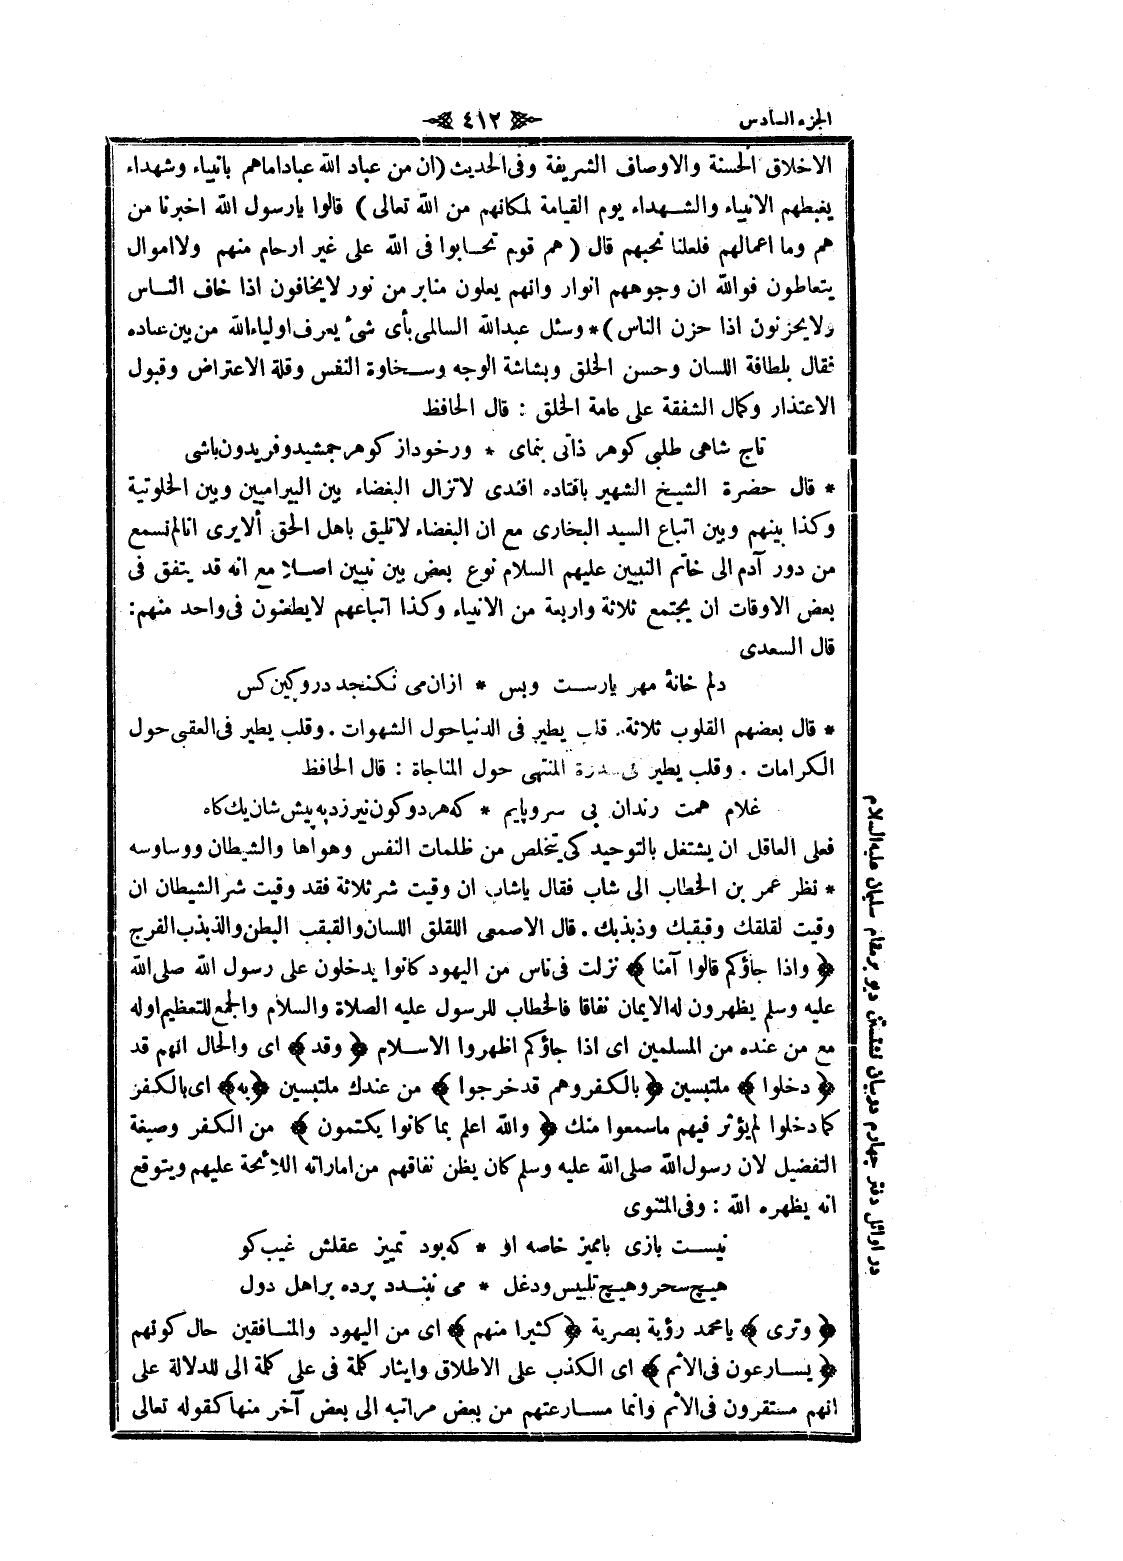 الجزء السادس
٤١٢
الاخلاق الحسنة والاوصاف الشريفة وفى الحديث (ان من عباد الله عباداماهم بانبياء وشهداء
يغبطهم الانبياء والشهداء يوم القيامة لمكانهم من الله تعالى) قالوا يارسول الله اخبرنا من
هم وما اعمالهم فلعلنا نحبهم قال (هم قوم تحابوا فى الله على غير ارحام منهم ولااموال
يتعاطون فوالله ان وجوههم انوار وانهم يعلون منابر من نور لايخافون اذا خاف الناس
ولايحزنون اذا حزن الناس)* وسئل عبدالله السالمى بأى شئ يعرف اولياءالله من بين عباده
فقال بلطافة اللسان وحسن الخلق وبشاشة الوجه وسخاوة النفس وقلة الاعتراض وقبول
الاعتذار وكمال الشفقة على عامة الخلق : قال الحافظ
تاج شاهى طلبى كوهر ذاتى بنماى * ورخوداز كوهر جمشيدوفريدون باشى
* قال حضرة الشيخ الشهير بافتاده افندى لاتزال البغضاء بين البيراميين وبين الخلوتية
وكذا بينهم وبين اتباع السيد البخارى مع ان البغضاء لاتليق باهل الحق ألايرى انالم نسمع
من دور آدم الى خاتم النبيين عليهم السلام نوع بعض بين نبيين اصلا مع انه قد يتفق فى
بعض الاوقات ان يجتمع ثلاثة واربعة من الانبياء وكذا اتباعهم لايطعنون فى واحد منهم:
قال السعدى
دلم خانۀ مهر يارست وبس * ازان مى نكنجد دروكين كس
* قال بعضهم القلوب ثلاثة. قلب يطير فى الدنياحول الشهوات . وقلب يطير فى العقبى حول
الكرامات . وقلب يطير فى سدرة المنتهى حول المناجاة : قال الحافظ
غلام همت رندان بى سروپايم * كه هردوكون نيرزد به پيش شان يك كاه
فعلى العاقل ان يشتغل بالتوحيد كى يتخلص من ظلمات النفس وهواها والشيطان ووساوسه
* نظر عمر بن الخطاب الى شاب فقال ياشاب ان وقيت شر ثلاثة فقد وقيت شر الشيطان ان
وقيت لقلقك وقبقبك وذبذبك . قال الاصمعى اللقلق اللسان والقبقب البطن والذبذب الفرج
﴿ واذا جاؤكم قالوا آمنا ﴾ نزلت فى ناس من اليهود كانوا يدخلون على رسول الله صلى الله
عليه وسلم يظهرون له الايمان نفاقا فالخطاب للرسول عليه الصلاة والسلام والجمع للتعظيم اوله
مع من عنده من المسلمين اى اذا جاؤكم اظهروا الاسلام ﴿ وقد ﴾ اى والحال انهم قد
﴿ دخلوا ﴾ ملتبسين ﴿ بالكفر وهم قدخرجوا ﴾ من عندك ملتبسين ﴿ به ﴾ اى بالكفر
كمادخلوا لم يؤثر فيهم ماسمعوا منك ﴿ والله اعلم بما كانوا يكتمون ﴾ من الكفر وصيغة
التفضيل لان رسول الله صلى الله عليه وسلم كان يظن نفاقهم من اماراته اللائحة عليهم ويتوقع
انه يظهره الله : وفى المثنوى
نيست بازى باميز خاصه او * كه بود تمييز عقلش غيب كو
هيچ سحر وهيچ تلبيس ودغل * مى نبندد پرده براهل دول
﴿ وترى ﴾ يامحمد رؤية بصرية ﴿ كثيرا منهم ﴾ اى من اليهود والمنافقين حال كونهم
﴿ يسارعون فى الأثم ﴾ اى الكذب على الاطلاق وايثار كلمة فى على كلمة الى للدلالة على
انهم مستقرون فى الأثم وانما مسارعتهم من بعض مراتبه الى بعض آخر منها كقوله تعالى
در اوائل دفتر چهارم دربيان نشستن ديو برمقام سليمان عليه السلام